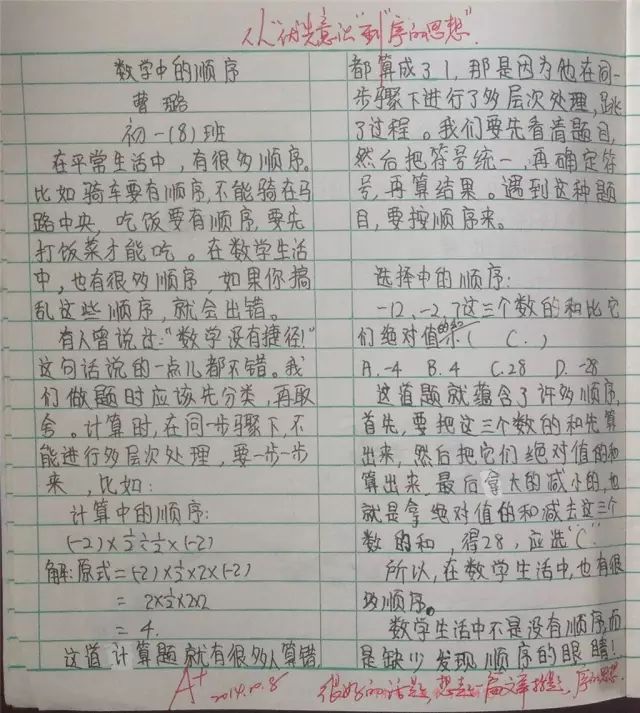 从“优先意识”到“序的思想”.
数学中的顺序
曹璐
初一(8)班
在平常生活中，有很多顺序。
比如骑车要有顺序，不能骑在马
路中央，吃饭要有顺序，要先
打饭菜才能吃。在数学生活
中，也有很多顺序，如果你搞
乱这些顺序，就会出错。
有人曾说过：“数学没有捷径！”
这句话说的一点儿都不错。我
们做题时应该先分类，再取
舍。计算时，在同一步骤下，不
能进行多层次处理，要一步一步
来，比如：
计算中的顺序：
(-2)×½÷½×(-2)
解：原式=(-2)×½×2×(-2)
=2×½×2×2
=4.
这道计算题就有很多人算错，
都算成了1，那是因为他在同一
步骤下进行了多层次处理，跳
了过程。我们要先看清题目，
然后把符号统一，再确定符
号，再算结果。遇到这种题
目，要按顺序来。
选择中的顺序：
-12，-2，7这三个数的和比它
们绝对值的和( C. )
A.-4 B.4 C.28 D.-28
这道题就蕴含了许多顺序，
首先，要把这三个数的和先算
出来，然后把它们绝对值的和
算出来，最后拿大的减小的，也
就是拿绝对值的和减去这三个
数的和，得28，应选“C”.
所以，在数学生活中，也有很
多顺序。
数学生活中不是没有顺序，而
是缺少发现顺序的眼睛！
A+
2014.10.8
很好的话题，想去一篇文章挂题，序的思想.